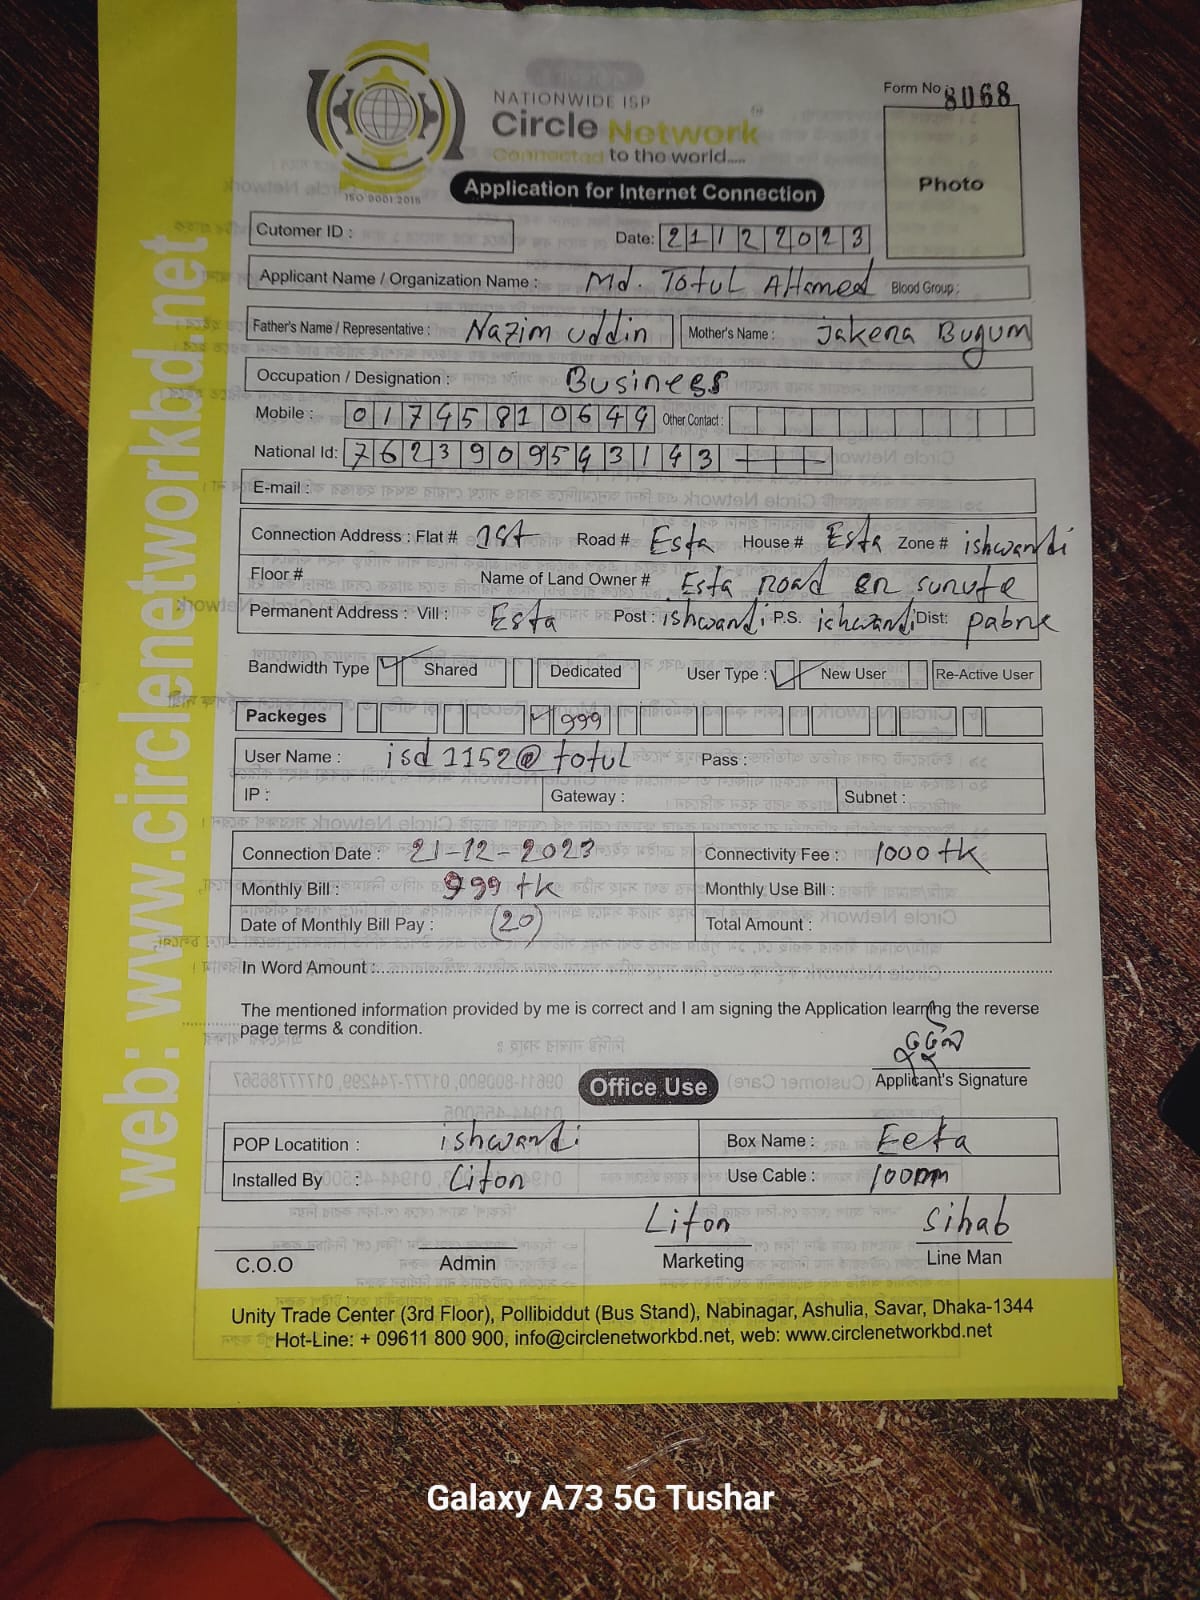 NATIONWIDE ISP
Circle Network
Connected to the world.....
ISO 9001:2015
Form No 8068
Photo
Application for Internet Connection
Cutomer ID :
Date: 21 12 2023
Applicant Name / Organization Name : Md. Totul AHamed Blood Group :
Father's Name / Representative : Nazim uddin Mother's Name : Jakera Bugum
Occupation / Designation : Business
Mobile : 01745810644 Other Contact :
National Id: 7623909543143
E-mail :
Connection Address : Flat # 1st Road # Esta House # Esta Zone # ishwardi
Floor # Name of Land Owner # Esta road
Permanent Address : Vill : Esta Post : ishwardi P.S. ishwardi Dist: pabne
Bandwidth Type Shared Dedicated User Type : New User Re-Active User
Packeges 999
User Name : isd1152@totul Pass :
IP : Gateway : Subnet :
Connection Date : 21-12-2023 Connectivity Fee : 1000 tk
Monthly Bill : 999 tk Monthly Use Bill :
Date of Monthly Bill Pay : (20) Total Amount :
In Word Amount :
The mentioned information provided by me is correct and I am signing the Application learning the reverse
page terms & condition.
তুতুল
Applicant's Signature
Office Use
POP Locatition : ishwardi Box Name : Eeta
Installed By : Liton Use Cable : 100mm
Liton Sihab
C.O.O Admin Marketing Line Man
Unity Trade Center (3rd Floor), Pollibiddut (Bus Stand), Nabinagar, Ashulia, Savar, Dhaka-1344
Hot-Line: + 09611 800 900, info@circlenetworkbd.net, web: www.circlenetworkbd.net
web: www.circlenetworkbd.net
Galaxy A73 5G Tushar